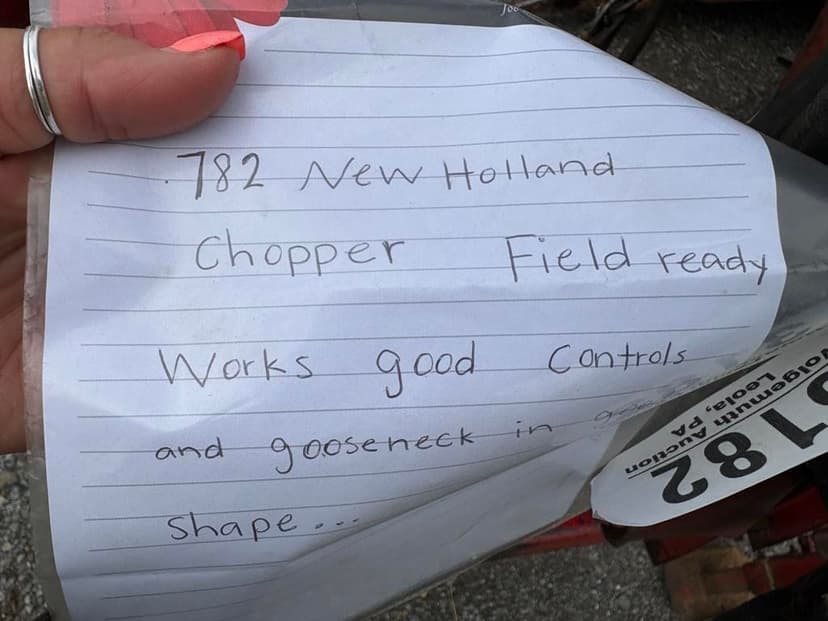 782 New Holland
Chopper Field ready
Works good Controls
and gooseneck in
shape...
182
Wolgemuth Auction
Leola, PA